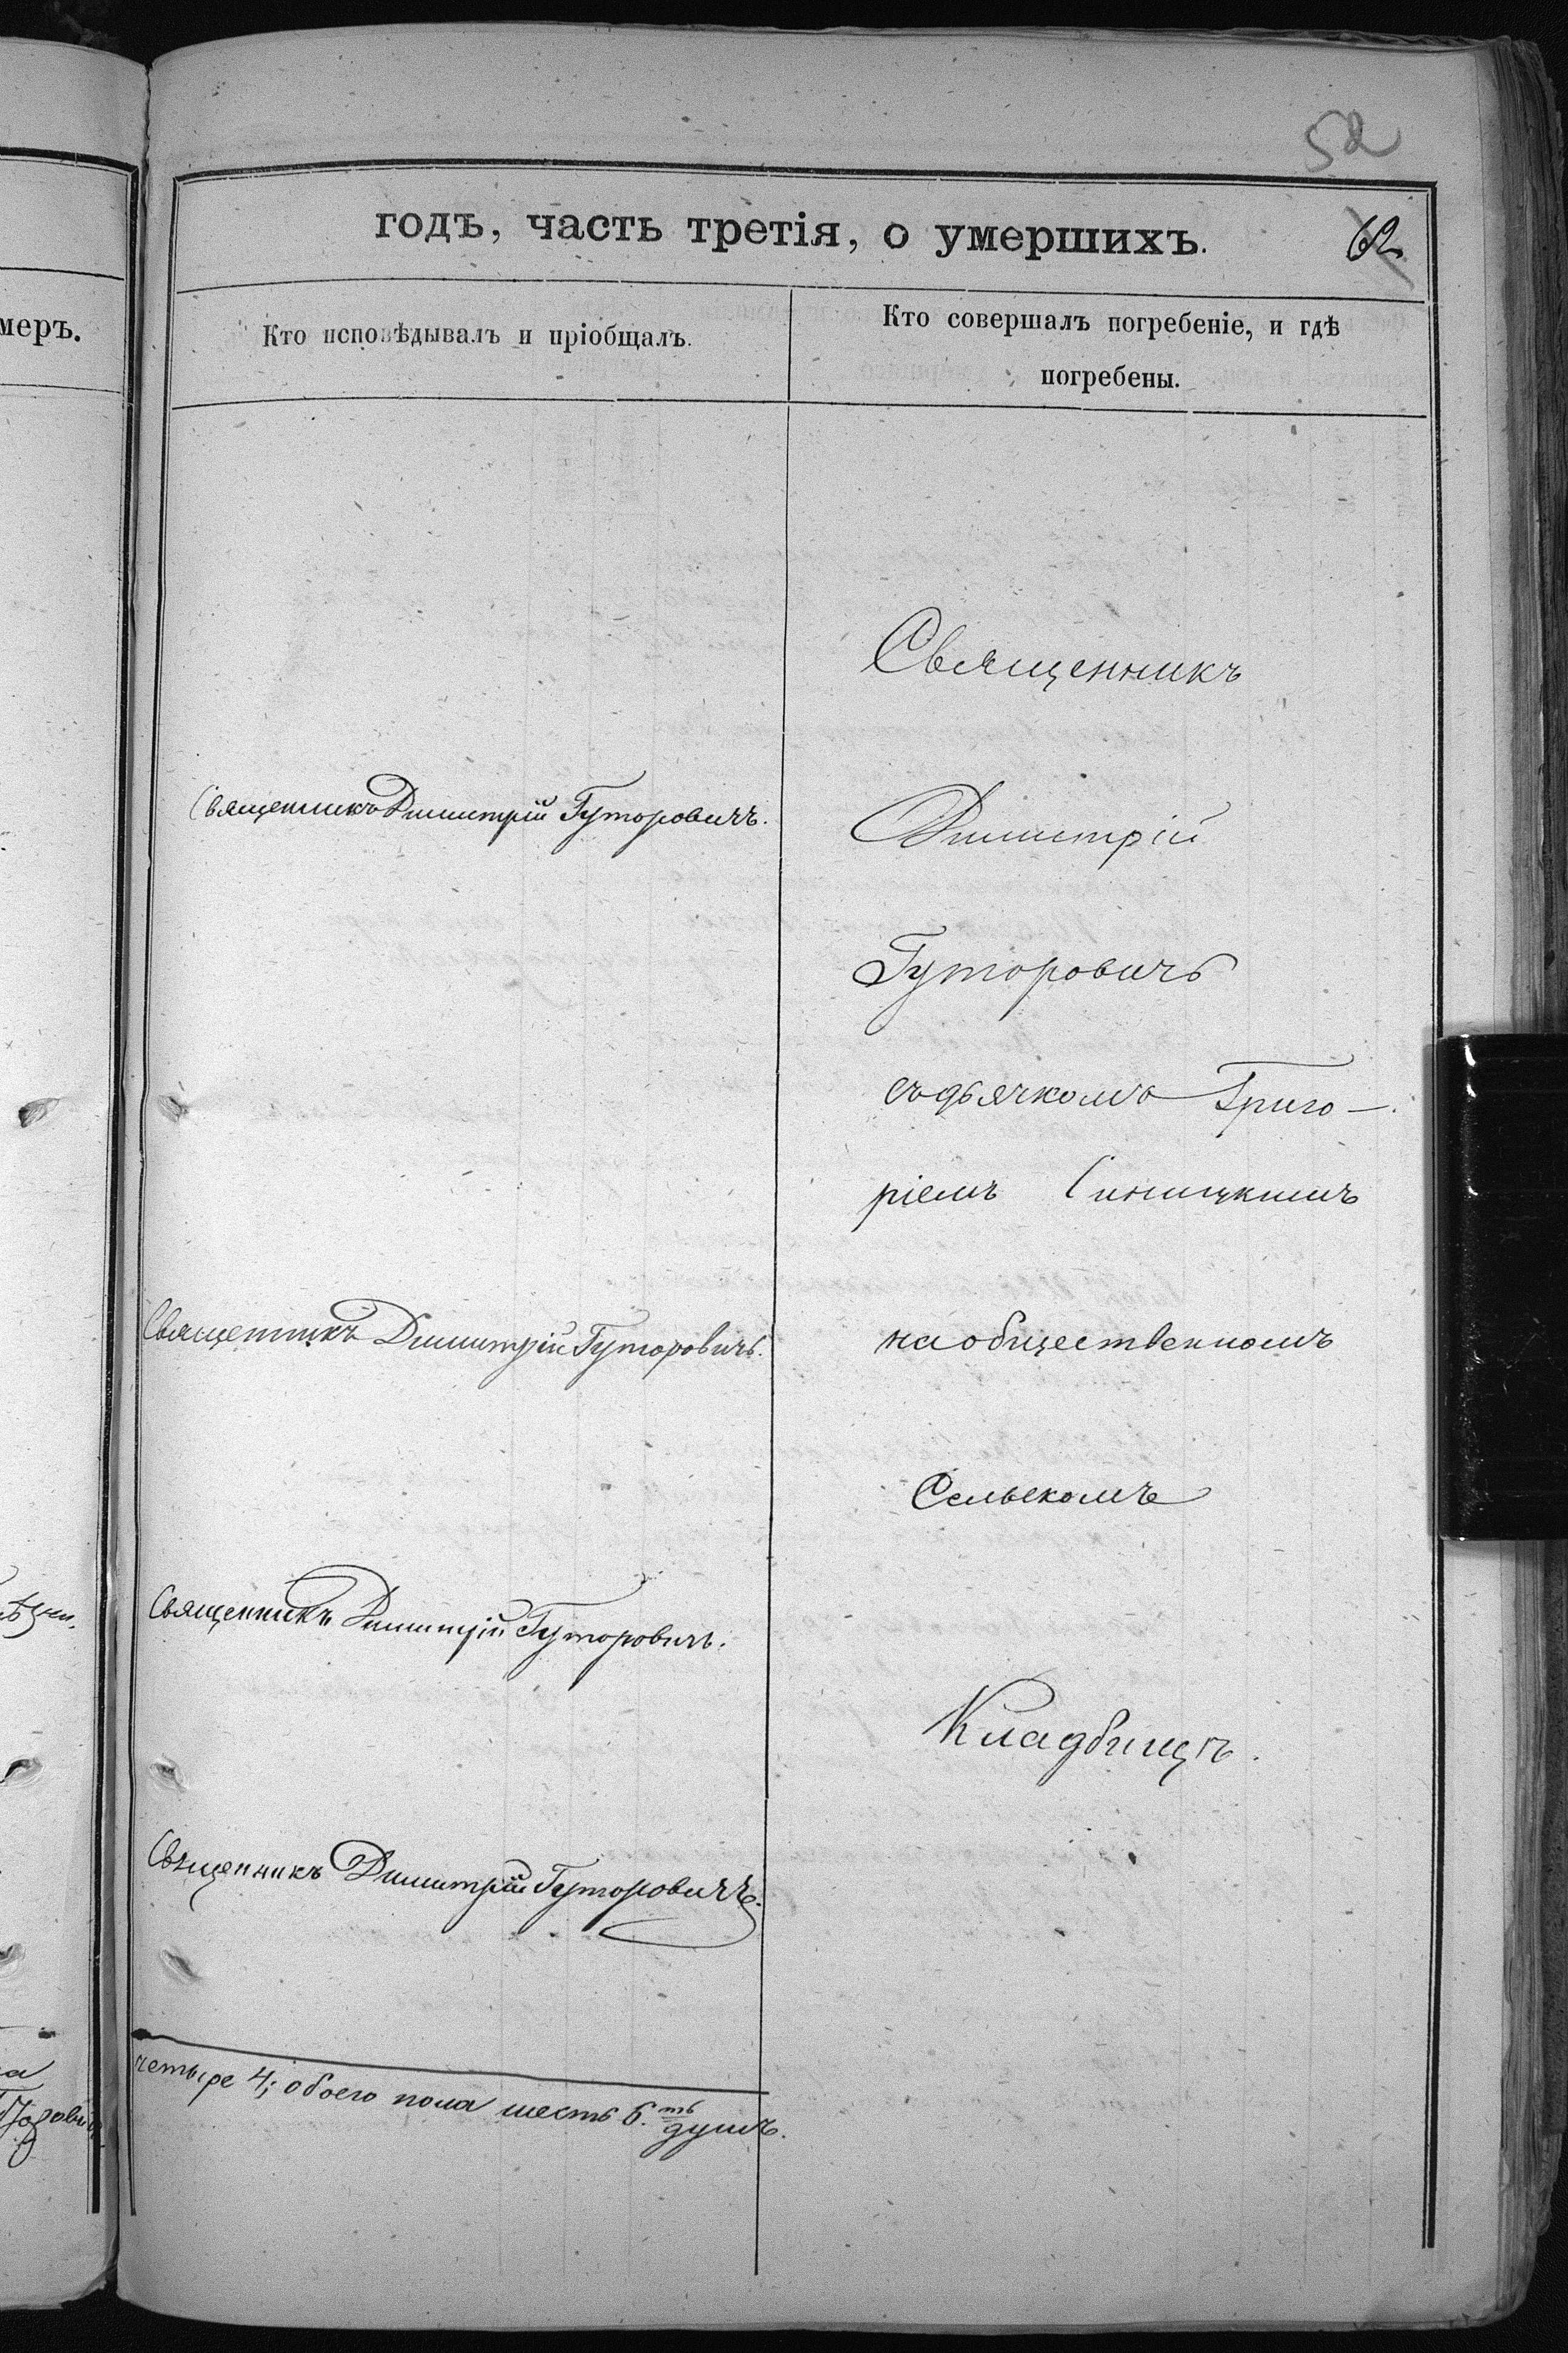 52
годъ, часть третія, о умершихъ.
62
меръ.
Кто исповѣдывалъ и пріобщалъ.
Кто совершалъ погребеніе, и гдѣ
погребены.
Священникъ
Священникъ Димитрій Гуторовичъ.
Димитрій
Гуторовичъ
съ дьячкомъ Григо-
ріемъ Синицкимъ
Священникъ Димитрій Гуторовичъ.
на общественномъ
Сельскомъ
Священникъ Димитрій Гуторовичъ.
Кладбищѣ.
Священникъ Димитрій Гуторовичъ.
четыре 4; обоего пола шесть 6.ть душъ.